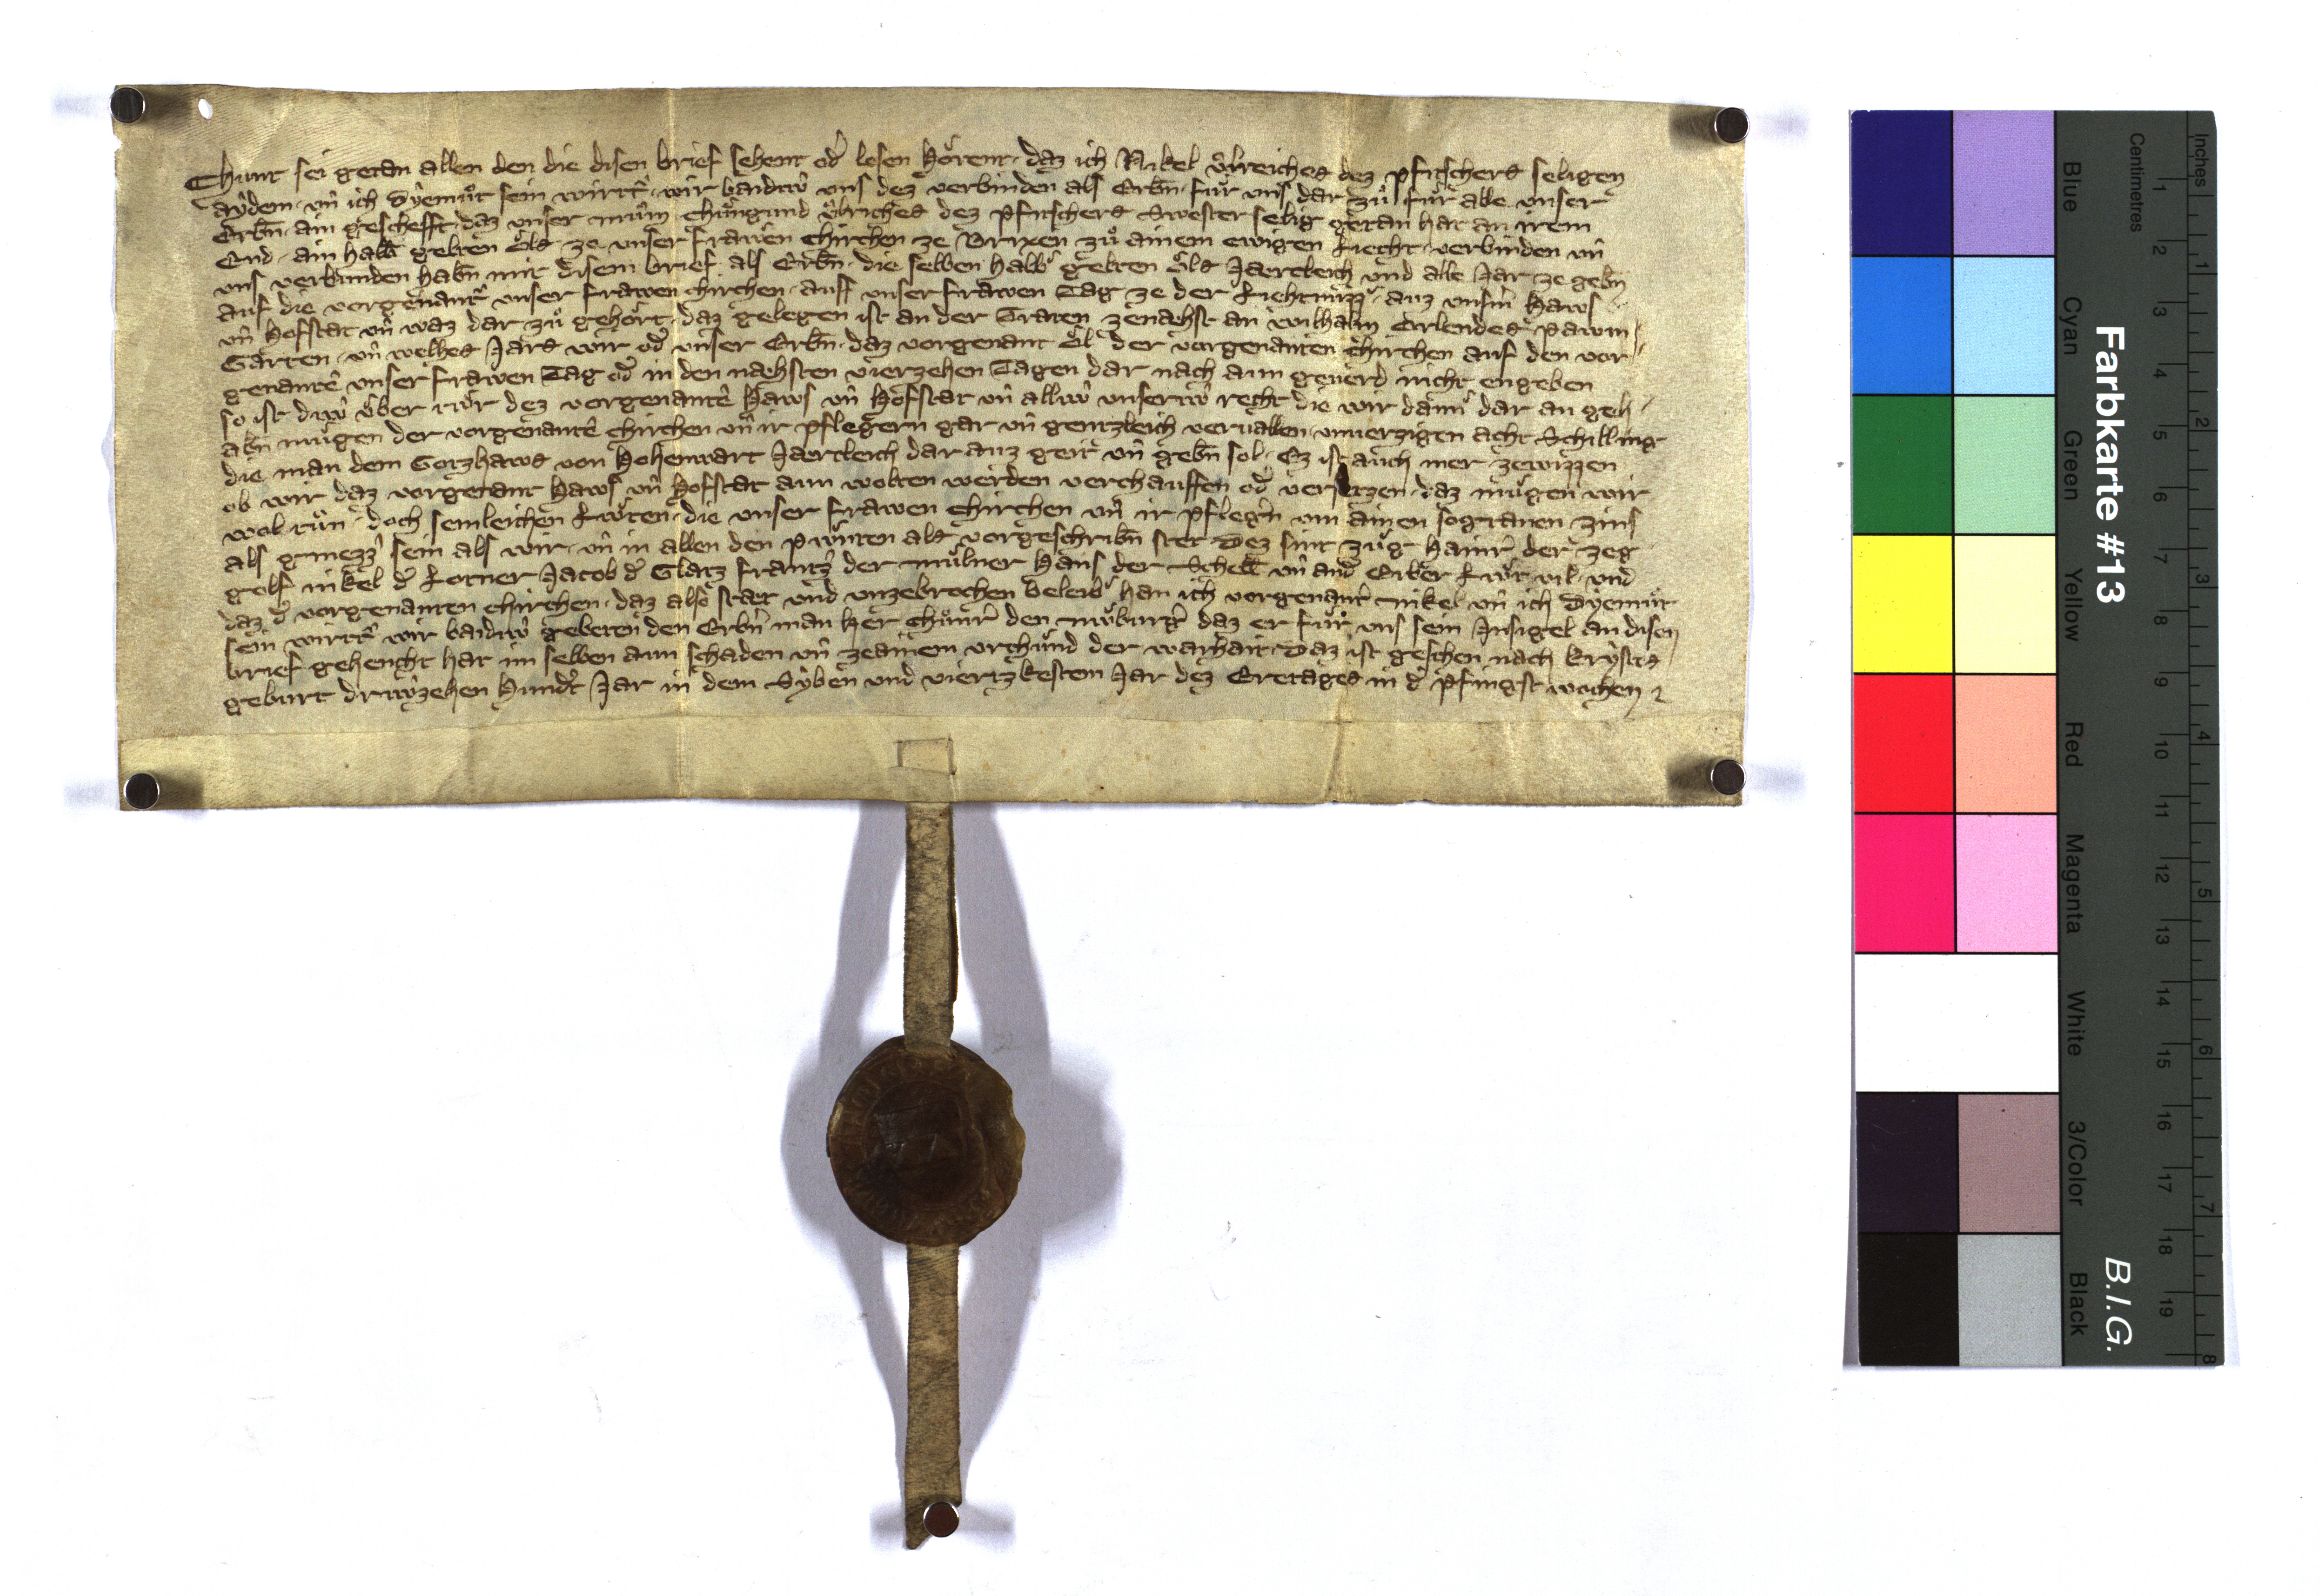 Chunt sei getan allen den die disen brief sehent od̾ lesen hoͤrent · daz ich Nikel vͦlreiches dez pfitschers seligen
aẏdem · vn̄ ich Dyemuͦt sein wirtt̾ · wir baideẘ vns dez verbinden als Erbn̄ · fuͤr vns dar zuͦ fuͤr alle vnser
Erbn̄ · ain geschefft · daz vnser muͤm chuͤngund vͦlriches dez pfitschers Swester selig getan hat an irem
End · ain halb gelten oͤls ze vnser frawen chirchen ze Brixen zuͦ ainem ewigen Liecht · verbinden vn̄
vns verbunden habn̄ mit disem brief als Erbn̄ · die selben halb gelten oͤls Jaercleich vnd alle Jar ze gebn̄
auf die vorgenant̾ vnser frawen chirchen · auff vnser frawen Tag ze der Liehtmizz · auz vnsm̄ Haws
vn̄ Hofstat vn̄ waz dar zuͦ gehoͤrt · daz gelegen ist an der Traten zenaehst an wilhalm Erlendes pawm
Garten · vn̄ welhes Jars wir od̾ vnser Erbn̄ · daz vorgenant oͤl der vorgenanten chirchen auf den vor
genantē vnser frawen Tag od̾ in den naehsten vierzehen Tagen dar nach aun geuerd nicht engeben
so ist diẘ uͤber tuͤr dez vorgenantē Haws vn̄ Hofstat vn̄ alliẘ vnseriẘ recht die wir dann dar an geh
abn̄ muͤgen der vorgenantē chirchen vn̄ ir pflegern gar vn̄ gentzleich veruallen · vnuerzigen acht Schilling
die man dem Gotzhaws von Hohenwart Jaercleich dar auz geit vn̄ gebn̄ sol · Ez ist auch mer zewizzen
ob wir daz vorgenant Haws vn̄ Hofstat aun wolten werden verchauffen od̾ versetzen · daz muͤgen wir
wol tuͤn · doch semleichen Leẘten · die vnser frawen chirchen vn̄ ir pfleg̾n vm ainen sogtanen zins
als gmezz sein als wir · vn̄ in allen den pẘnten als vorgeschribn̄ stet Dez sint zuͤg hainr̾ der zeg
golf nikel d̾ Lotner Jacob d̾ Glatz frantz der muͤlner Hans der Schell vn̄ and̾ Erber Leẘt vil · vnd
daz d̾ vorgenanten chirchen · daz also staet vnd vnzebrochen beleib han ich vorgenant̾ nikel vn̄ ich Dyemuͦt
sein wirtt̾ wir baideẘ gebeten den Erbn̄ man her chuͦnr̾ den nuͤburg̾ daz er fuͤr vns sein Jnsigel an disen
brief gehencht hat im selben aun schaden vn̄ zeainem vrchund der warhait · Daz ist geschen nach krysts
geburt dreẘzehen Hund̾t Jar in dem Syben vnd viertzkestem Jar dez Eretages in d̾ pfingst wochen
Farbkarte #13
B.I.G.
Centimetres
Inches
Blue
Cyan
Green
Yellow
Red
Magenta
White
3/Color
Black
1
2
3
4
5
6
7
8
9
10
11
12
13
14
15
16
17
18
19
1
2
3
4
5
6
7
8